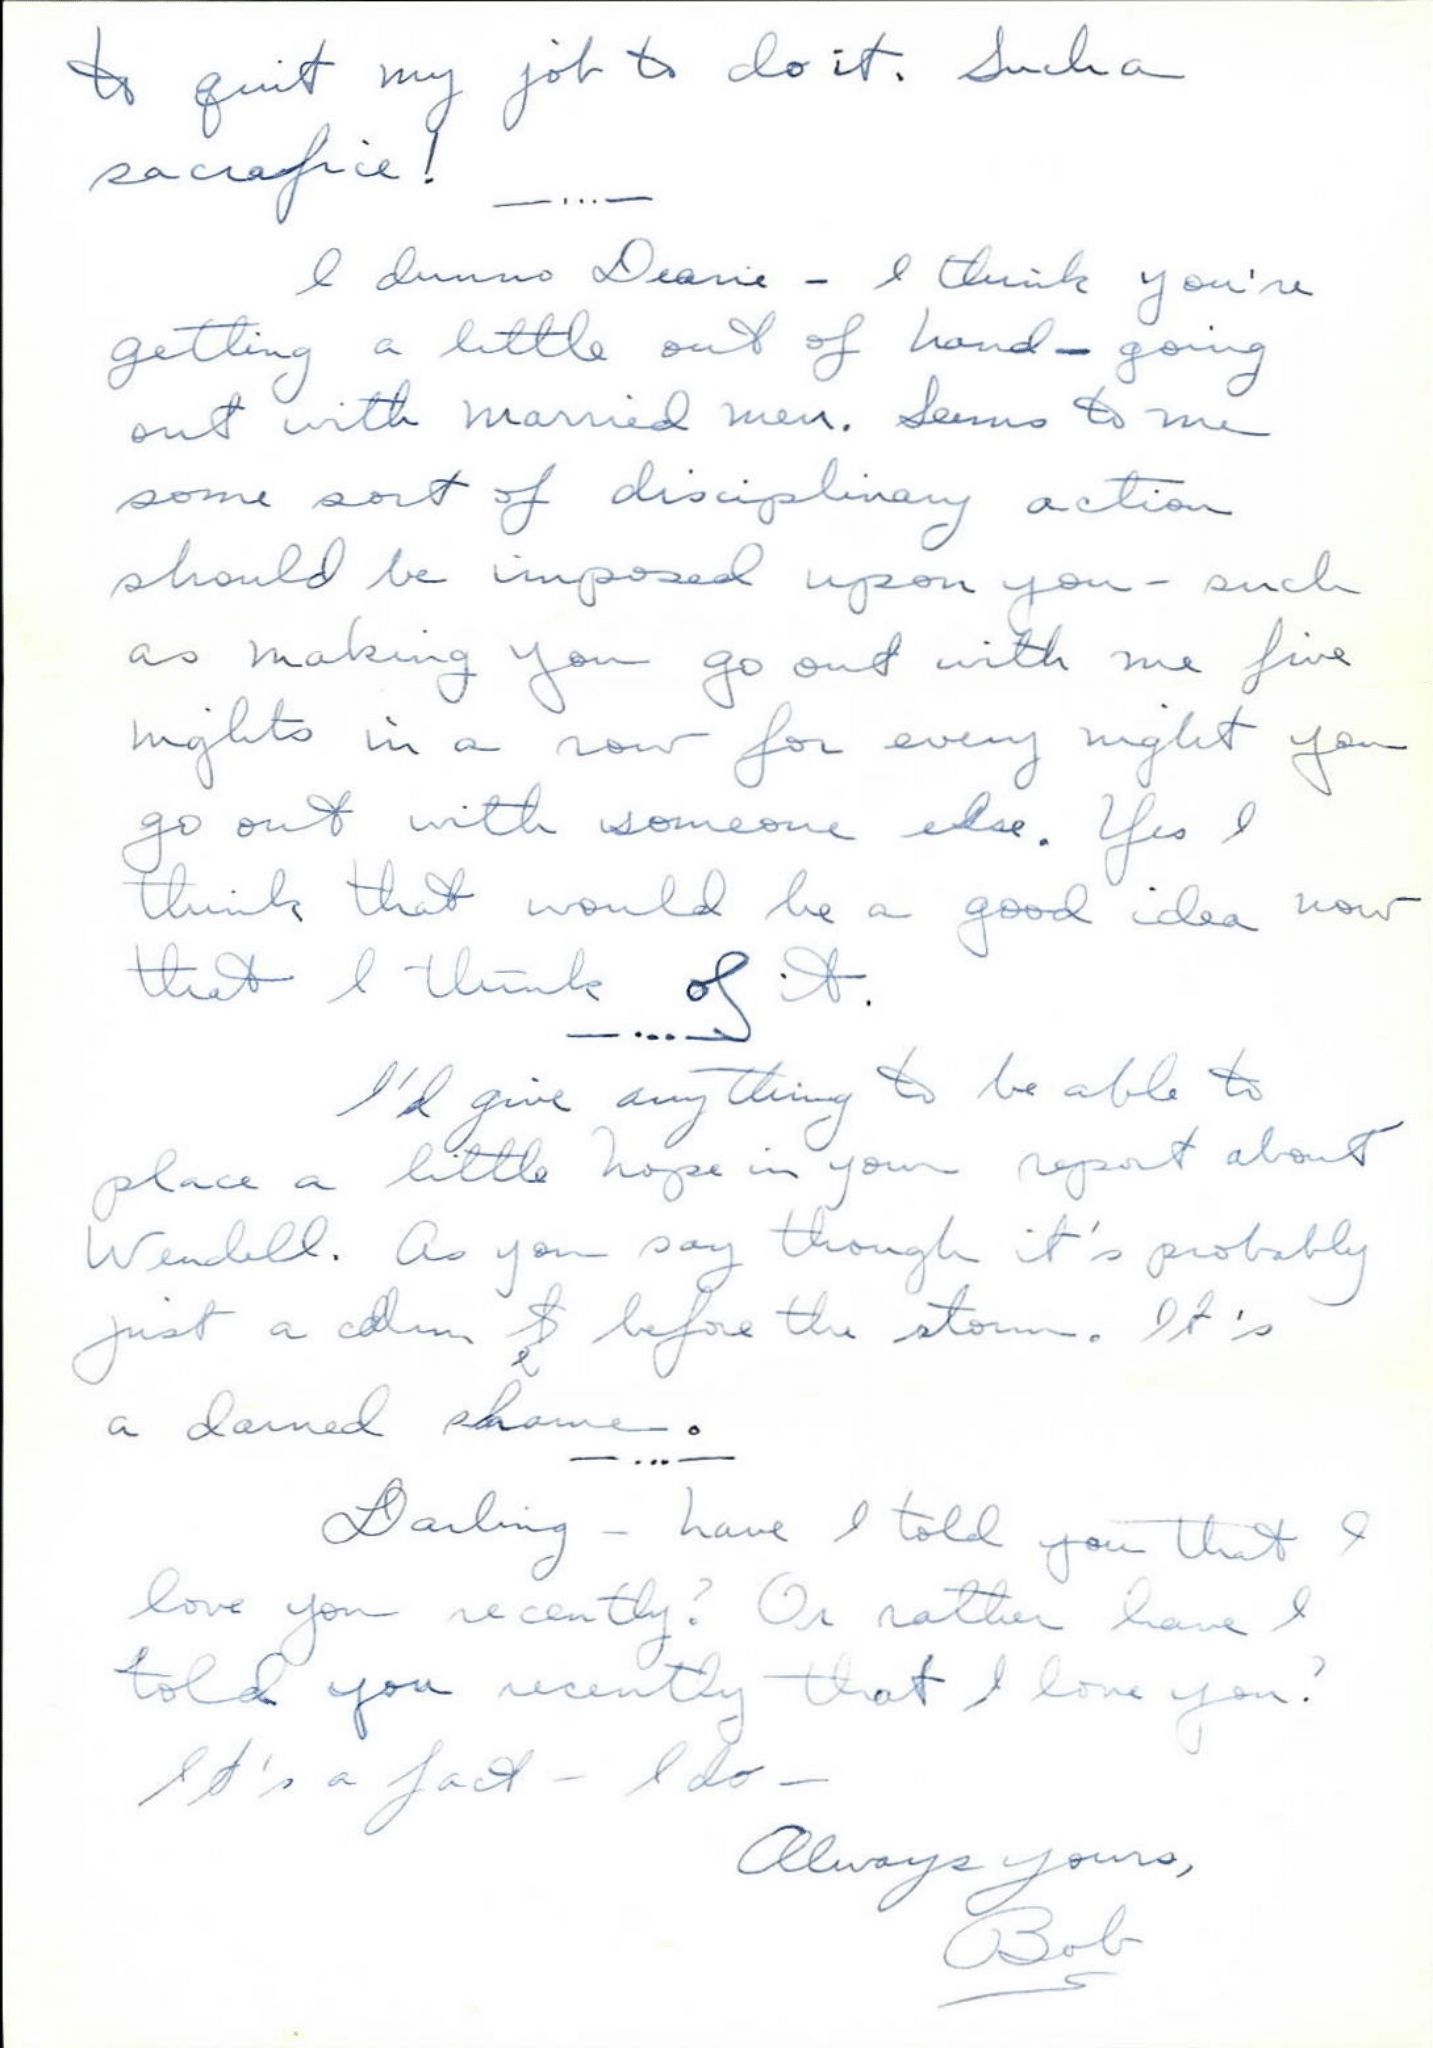 to quit my job to do it. Such a
sacrafice!
— ... —
I dunno Dearie - I think you're
getting a little out of hand - going
out with married men. Seems to me
some sort of disciplinary action
should be imposed upon you - such
as making you go out with me five
nights in a row for every night you
go out with someone else. Yes I
think that would be a good idea now
that I think of it.
— ... —
I'd give anything to be able to
place a little hope in your report about
Wendell. As you say though it's probably
just a calm before the storm. It's
a darned shame.
— ... —
Darling - have I told you that I
love you recently? Or rather have I
told you recently that I love you?
It's a fact - I do -
Always yours,
Bob